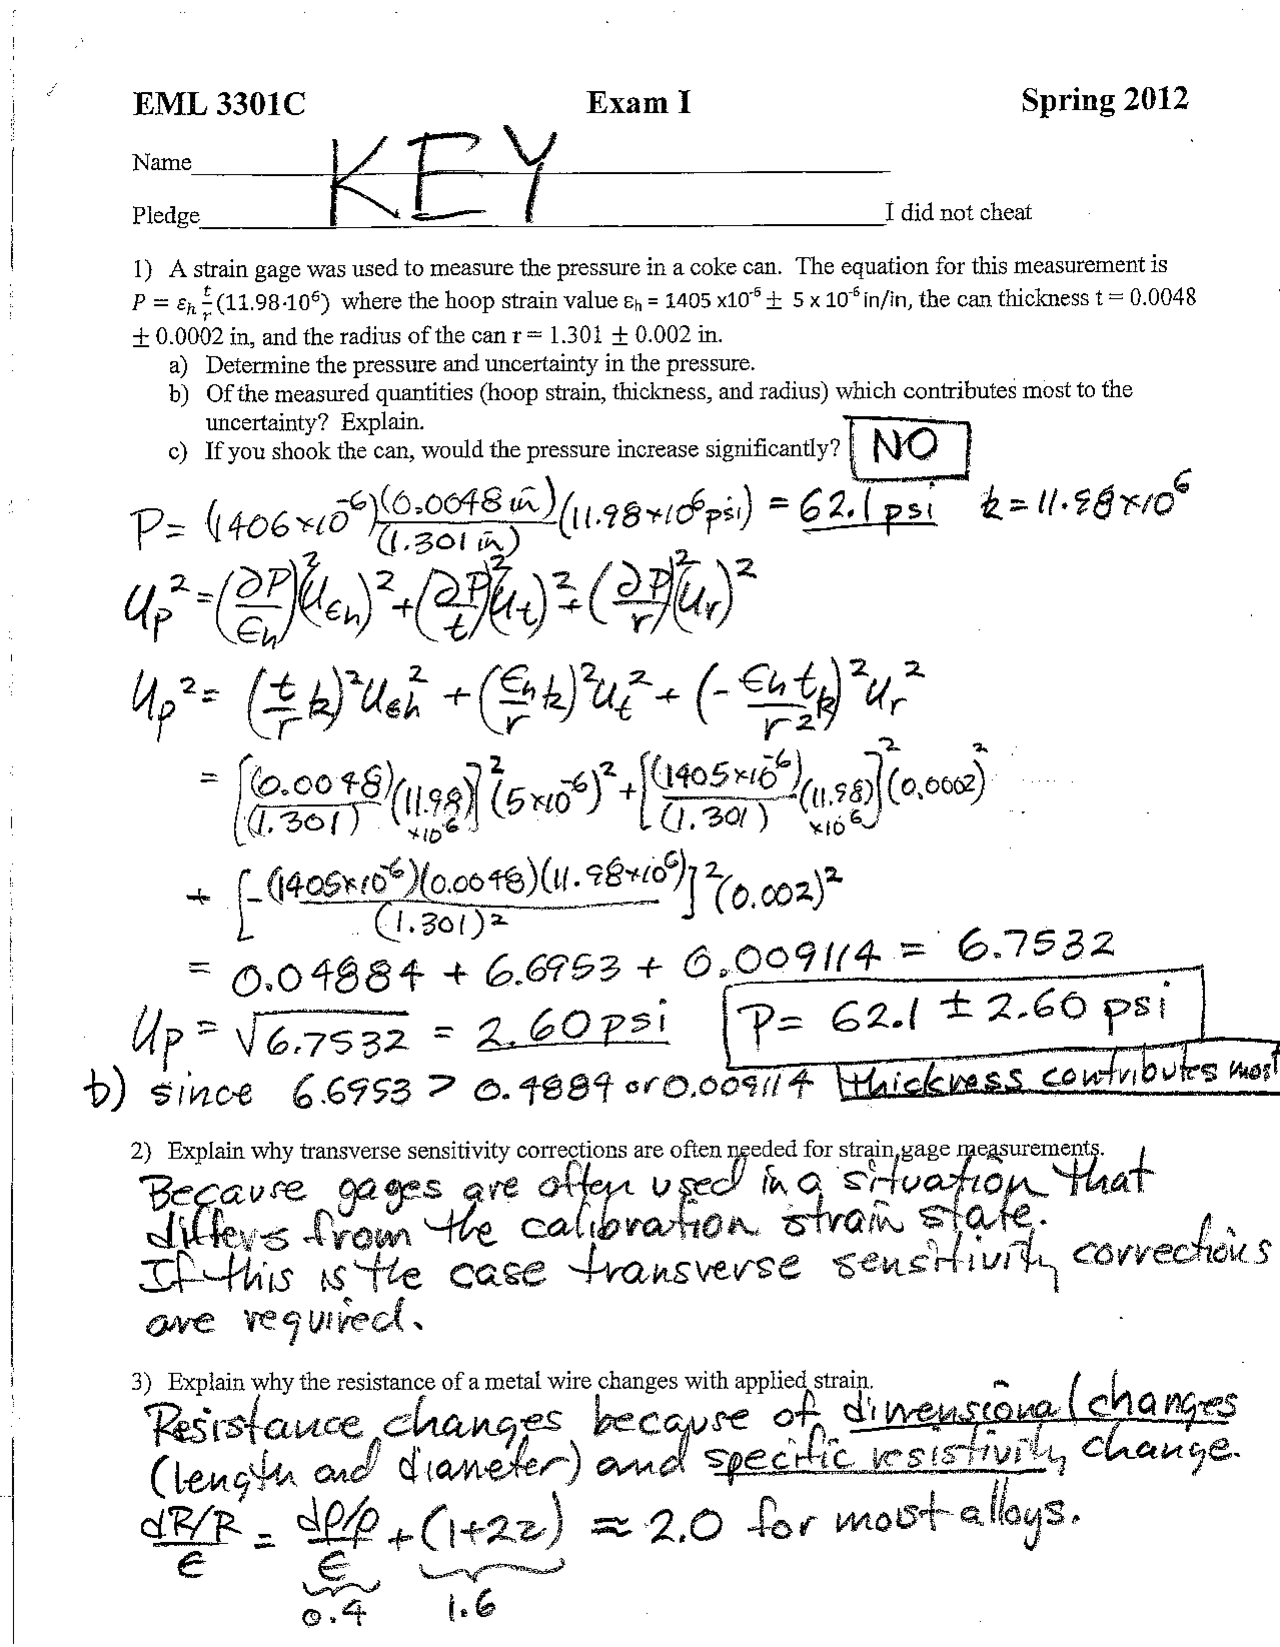 EML 3301C Exam I Spring 2012
Name KEY
Pledge I did not cheat
1) A strain gage was used to measure the pressure in a coke can. The equation for this measurement is
P = εh t/r (11.98·10⁶) where the hoop strain value εh = 1405 x10⁻⁶ ± 5 x 10⁻⁶ in/in, the can thickness t = 0.0048
± 0.0002 in, and the radius of the can r = 1.301 ± 0.002 in.
a) Determine the pressure and uncertainty in the pressure.
b) Of the measured quantities (hoop strain, thickness, and radius) which contributes most to the
uncertainty? Explain.
c) If you shook the can, would the pressure increase significantly? NO
P = (1406×10⁻⁶)(0.0048 in)/(1.301 in) (11.98×10⁶psi) = 62.1 psi k = 11.98×10⁶
Up² = (∂P/εh)²(Uεh)² + (∂P/t)²(Ut)² + (∂P/r)²(Ur)²
Up² = (t/r k)² Uεh² + (εh/r k)² Ut² + (- εh t/r² k)² Ur²
= [(0.0048)/(1.301) (11.98×10⁶)]² (5×10⁻⁶)² + [(1405×10⁻⁶)/(1.301) (11.98×10⁶)]² (0.0002)²
+ [-(1405×10⁻⁶)(0.0048)(11.98×10⁶)/(1.301)²]² (0.002)²
= 0.04884 + 6.6953 + 0.009114 = 6.7532
Up = √6.7532 = 2.60 psi P = 62.1 ± 2.60 psi
b) since 6.6953 > 0.4884 or 0.009114 thickness contributes most
2) Explain why transverse sensitivity corrections are often needed for strain gage measurements.
Because gages are often used in a situation that
differs from the calibration strain state.
If this is the case transverse sensitivity corrections
are required.
3) Explain why the resistance of a metal wire changes with applied strain.
Resistance changes because of dimensional changes
(length and diameter) and specific resistivity change.
dR/R/ε = dρ/ρ/ε + (1+2ν) ≈ 2.0 for most alloys.
0.4 1.6